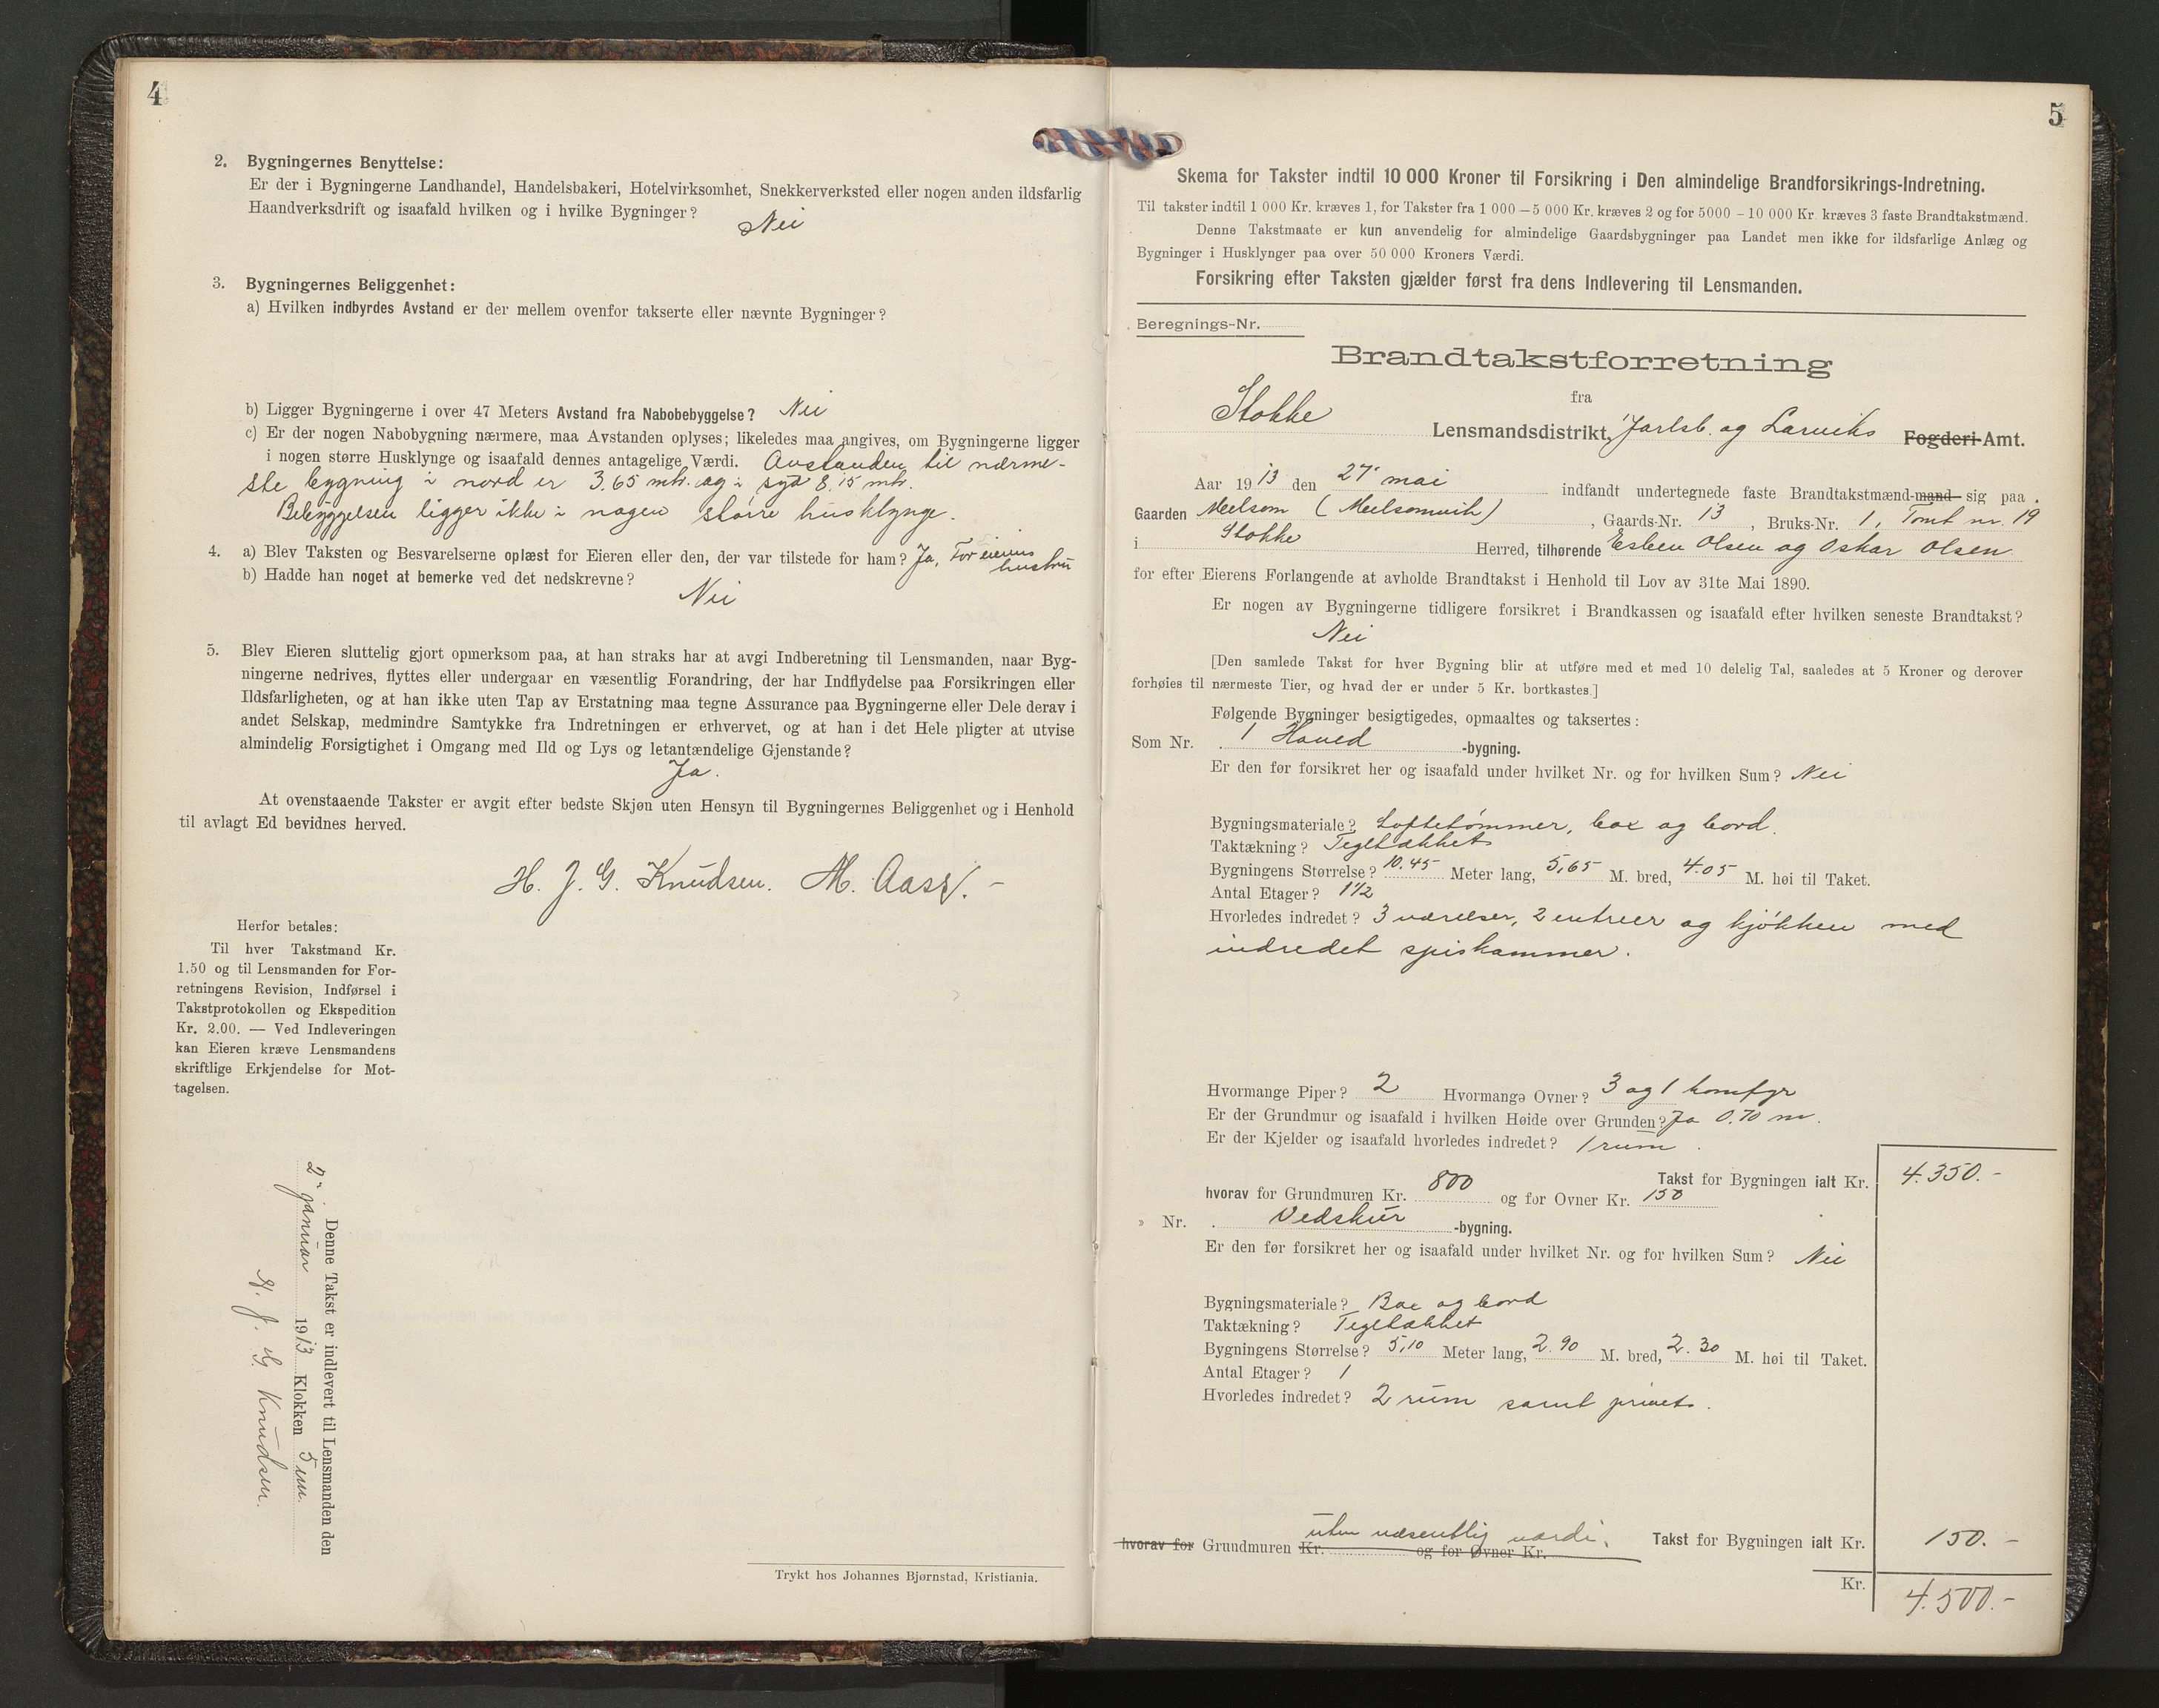 4
2. Bygningernes Benyttelse:
Er der i Bygningerne Landhandel, Handelsbakeri, Hotelvirksomhet, Snekkerverksted eller nogen anden ildsfarlig
Haandverksdrift og isaafald hvilken og i hvilke Bygninger?
Nei
3. Bygningernes Beliggenhet:
a) Hvilken indbyrdes Avstand er der mellem ovenfor takserte eller nævnte Bygninger?
b) Ligger Bygningerne i over 47 Meters Avstand fra Nabobebyggelse? Nei
c) Er der nogen Nabobygning nærmere, maa Avstanden oplyses; likeledes maa angives, om Bygningerne ligger
i nogen større Husklynge og isaafald dennes antagelige Værdi. Avstanden til nærme-
ste bygning i nord er 3,65 mtr. og i syd 8,15 mtr.
Bebyggelsen ligger ikke i nogen større husklynge.
4. a) Blev Taksten og Besvarelserne oplæst for Eieren eller den, der var tilstede for ham? Ja, For eierens
hustru
b) Hadde han noget at bemerke ved det nedskrevne?
Nei
5. Blev Eieren sluttelig gjort opmerksom paa, at han straks har at avgi Indberetning til Lensmanden, naar Byg-
ningerne nedrives, flyttes eller undergaar en væsentlig Forandring, der har Indflydelse paa Forsikringen eller
Ildsfarligheten, og at han ikke uten Tap av Erstatning maa tegne Assurance paa Bygningerne eller Dele derav i
andet Selskap, medmindre Samtykke fra Indretningen er erhvervet, og at han i det Hele pligter at utvise
almindelig Forsigtighet i Omgang med Ild og Lys og letantændelige Gjenstande?
Ja.
At ovenstaaende Takster er avgit efter bedste Skjøn uten Hensyn til Bygningernes Beliggenhet og i Henhold
til avlagt Ed bevidnes herved.
H. J. G. Knudsen. M. Aas
Herfor betales:
Til hver Takstmand Kr.
1.50 og til Lensmanden for For-
retningens Revision, Indførsel i
Takstprotokollen og Ekspedition
Kr. 2.00. — Ved Indleveringen
kan Eieren kræve Lensmandens
skriftlige Erkjendelse for Mot-
tagelsen.
Denne Takst er indlevert til Lensmanden den
2' januar 1913 Klokken 5 em.
H. J. G. Knudsen.
Trykt hos Johannes Bjørnstad, Kristiania.
5
Skema for Takster indtil 10 000 Kroner til Forsikring i Den almindelige Brandforsikrings-Indretning.
Til takster indtil 1 000 Kr. kræves 1, for Takster fra 1 000 – 5 000 Kr. kræves 2 og for 5000 – 10 000 Kr. kræves 3 faste Brandtakstmænd.
Denne Takstmaate er kun anvendelig for almindelige Gaardsbygninger paa Landet men ikke for ildsfarlige Anlæg og
Bygninger i Husklynger paa over 50 000 Kroners Værdi.
Forsikring efter Taksten gjælder først fra dens Indlevering til Lensmanden.
Beregnings-Nr.
Brandtakstforretning
fra
Stokke Lensmandsdistrikt, Jarlsb. og Larviks Fogderi-Amt.
Aar 1913 den 27' mai indfandt undertegnede faste Brandtakstmænd-mand sig paa
Gaarden Melsom (Melsomvik), Gaards-Nr. 13, Bruks-Nr. 1, Tomt nr. 19
i Stokke Herred, tilhørende Esben Olsen og Oskar Olsen
for efter Eierens Forlangende at avholde Brandtakst i Henhold til Lov av 31te Mai 1890.
Er nogen av Bygningerne tidligere forsikret i Brandkassen og isaafald efter hvilken seneste Brandtakst?
Nei
[Den samlede Takst for hver Bygning blir at utføre med et med 10 delelig Tal, saaledes at 5 Kroner og derover
forhøies til nærmeste Tier, og hvad der er under 5 Kr. bortkastes.]
Følgende Bygninger besigtigedes, opmaaltes og taksertes:
Som Nr. 1 Hoved -bygning.
Er den før forsikret her og isaafald under hvilket Nr. og for hvilken Sum? Nei
Bygningsmateriale? Loftetømmer, box og bord.
Taktækning? Tegltækket
Bygningens Størrelse? 10.45 Meter lang, 5,65 M. bred, 4.05 M. høi til Taket.
Antal Etager? 1 1/2
Hvorledes indredet? 3 værelser, 2 entreer og kjøkken med
indredet spiskammer.
Hvormange Piper? 2 Hvormange Ovner? 3 og 1 komfyr
Er der Grundmur og isaafald i hvilken Høide over Grunden? Ja 0.70 m.
Er der Kjelder og isaafald hvorledes indredet? 1 rum.
Takst for Bygningen ialt Kr. 4.350.-
hvorav for Grundmuren Kr. 800 og for Ovner Kr. 150
» Nr. Vedskur -bygning.
Er den før forsikret her og isaafald under hvilket Nr. og for hvilken Sum? Nei
Bygningsmateriale? Box og bord
Taktækning? Tegltækket
Bygningens Størrelse? 5,10 Meter lang, 2.90 M. bred, 2.30 M. høi til Taket.
Antal Etager? 1
Hvorledes indredet? 2 rum samt privet.
uten væsentlig værdi.
hvorav for Grundmuren Kr. og for Ovner Kr. Takst for Bygningen ialt Kr. 150.-
Kr. 4.500.-